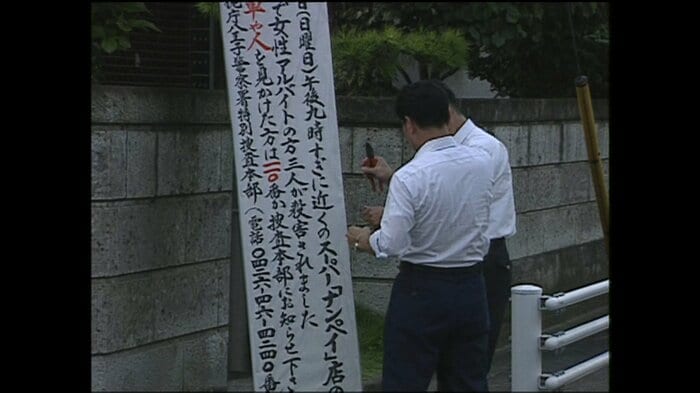 日（日曜日）午後九時すぎに近くのスーパー「ナンペイ」店の
で女性アルバイトの方三人が殺害されました
車や人を見かけた方は一一〇番か捜査本部にお知らせ下さ
視庁八王子警察署特別捜査本部（電話〇四二六-四六-四二四〇番